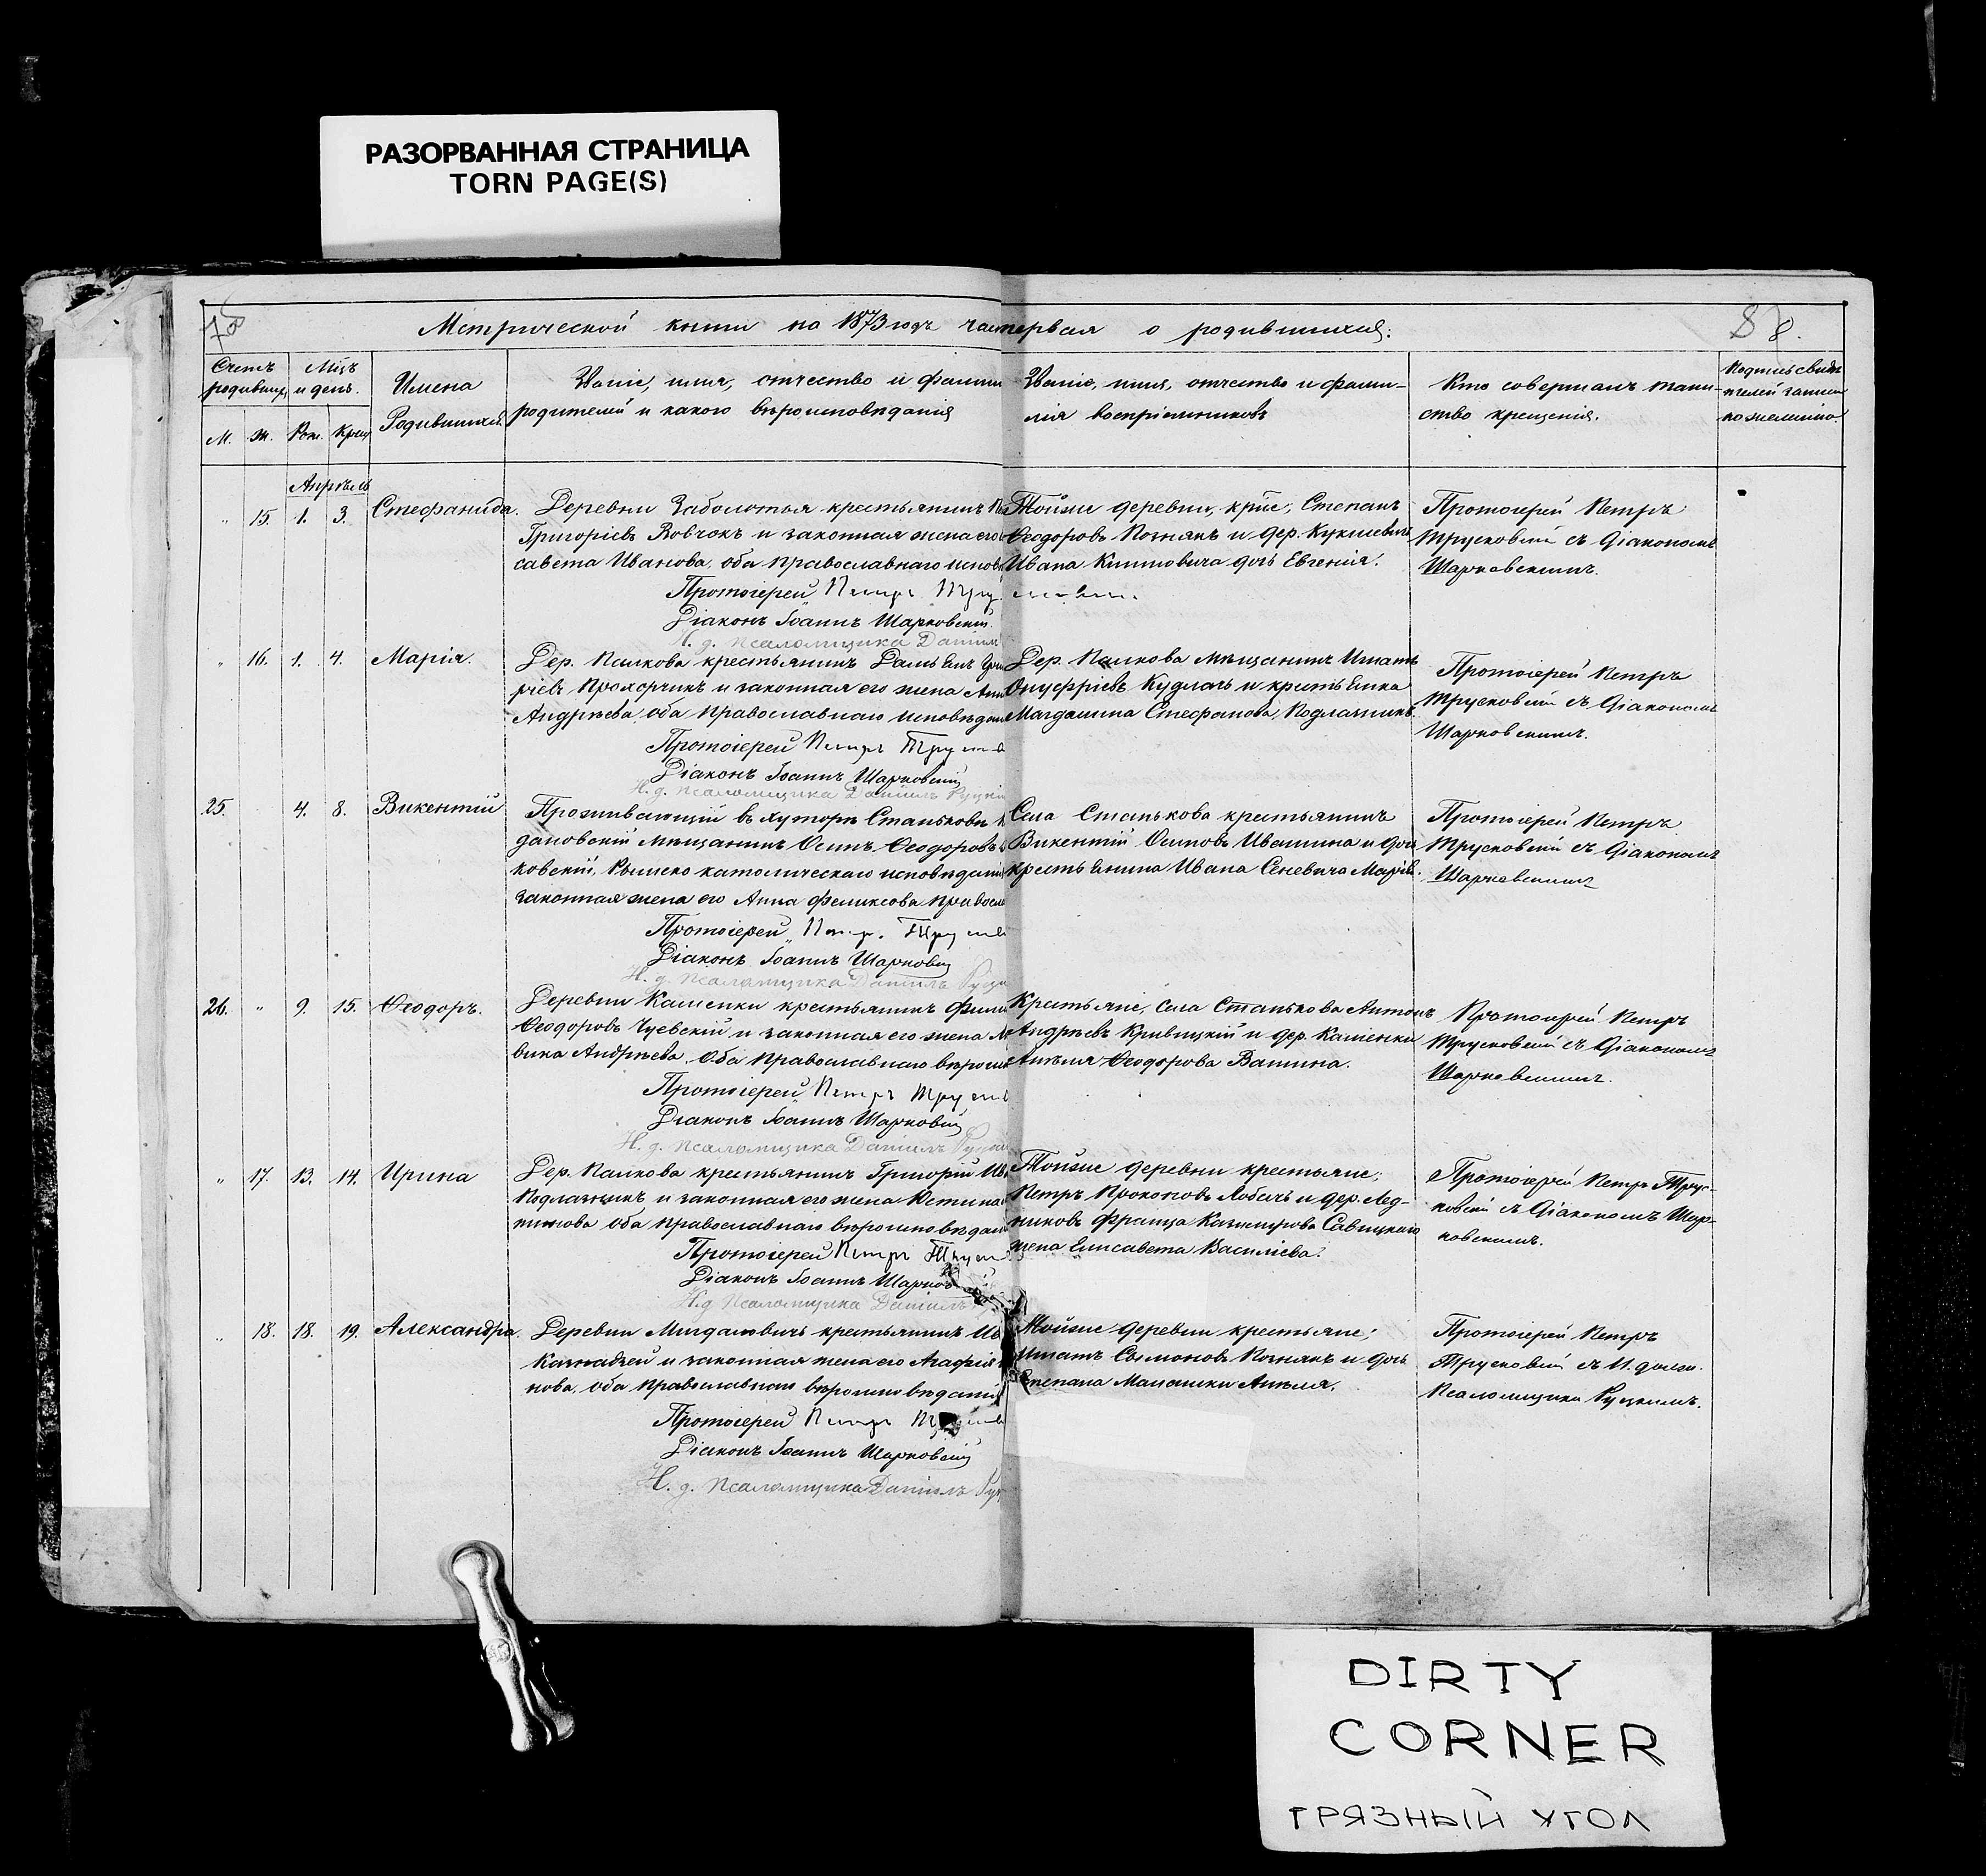 РАЗОРВАННАЯ СТРАНИЦА
TORN PAGE(S)
Метрической книги на 1873 годъ часть первая о родившихся.
Счетъ родивших.
М. Ж.
Мцъ и день.
Рож. Крещ.
Имена
Родившихся.
Званіе, имя, отчество и фамилі
родителей и какого вѣроисповѣданія
Званіе, имя, отчество и фами-
лія воспріемниковъ
Кто совершалъ таин-
ство крещенія.
Подпись свидѣ-
телей записи
по желанію.
Апрѣль
" 15. 1. 3. Стефанида.
Деревни Заболотья крестьянинъ
Григоріевъ Вовчокъ и законная жена его
савета Иванова, оба православнаго испов
Протоіерей Петръ
Діаконъ Іоаннъ Шарковскій.
И. д. псаломщика Даніилъ
Тойже деревни, крѣе, Степанъ
Ѳеодоровъ Познякъ и дер. Кукшевичь
Ивана дочь Евгенія.
Протоіерей Петръ
Трусковскій съ Діакономъ
Шарковскимъ.
" 16. 1. 4. Марія.
Дер. Палкова крестьянинъ Григо
ріевъ Прохорчикъ и законная его жена Анн
Андрѣева, оба православнаго исповѣдан
Протоіерей Петръ Труско
Діаконъ Іоаннъ Шарковскій
И. д. псаломщика Даніилъ Руцкі
Дер. Палкова мѣщанинъ Игнатъ
Онуфріевъ Кудлачъ и крестьянка
Магдалина Стефанова, Подлазникъ.
Протоіерей Петръ
Трусковскій съ Діакономъ
Шарковскимъ.
25. 4. 8. Викентій
Проживающій въ хуторѣ Станьковѣ
дановскій мѣщанинъ Осипъ Ѳеодоровъ
ковскій, Римско католическаго исповѣданія
законная жена его Анна Феликсова правосл
Протоіерей Петръ Труско
Діаконъ Іоаннъ Шарковскій
И. д. псаломщика Даніилъ Руцк
Села Станькова крестьянинъ
Викентій Осиповъ Ивашина и дочь
крестьянина Ивана Сеневича Марія.
Протоіерей Петръ
Трусковскій съ Діакономъ
Шарковскимъ
26. " 9. 15. Ѳеодоръ.
Деревни Каменки крестьянинъ Фили
Ѳеодоровъ Чуевскій и законная его жена
вика Андрѣева. Оба православнаго вѣроисп
Протоіерей Петръ Труск
Діаконъ Іоаннъ Шарковскій
И. д. псаломщика Даніилъ Руцкі
Крестьяне, села Станькова Антонъ
Андрѣевъ Кривицкій и дер. Каменки
Анѣля Ѳеодорова Ванина.
Протоіерей Петръ
Трусковскій съ Діакономъ
Шарковскимъ.
" 17. 13. 14. Ирина
Дер. Палкова крестьянинъ Григорій Ив
Подлазникъ и законная его жена Юстина
оба православнаго вѣроисповѣдан
Протоіерей Петръ Труск
Діаконъ Іоаннъ Шарков
И. д. псаломщика Даніилъ
Тойже деревни крестьяне;
Петръ Прокоповъ Лобачъ и дер. Лед-
никовъ Франца Казимірова Савицкаго
жена Елисавета Василіева.
Протоіерей Петръ Трус-
ковскій съ Діакономъ Шар-
ковскимъ.
" 18. 18. 19. Александра.
Деревни Мигдаловичь крестьянинъ Ив
Казнадѣей и законная жена его Агафія
нова, оба православнаго вѣроисповѣданія
Протоіерей Петръ
Діаконъ Іоаннъ Шарковскій
И. д. псаломщика Даніилъ Руц
Тойже деревни крестьяне;
Игнатъ Сымоновъ Познякъ и дочь
Степана Малашки Анѣля.
Протоіерей Петръ
Трусковскій съ И. долж.
Псаломщика Руцкимъ.
DIRTY
CORNER
ГРЯЗНЫЙ УГОЛ